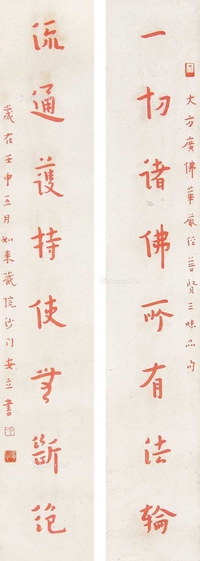 大方廣佛華嚴經普賢三昧品句
一切諸佛所有法輪
流通護持使無斷絕
歲在壬申五月如來藏院沙門安立書